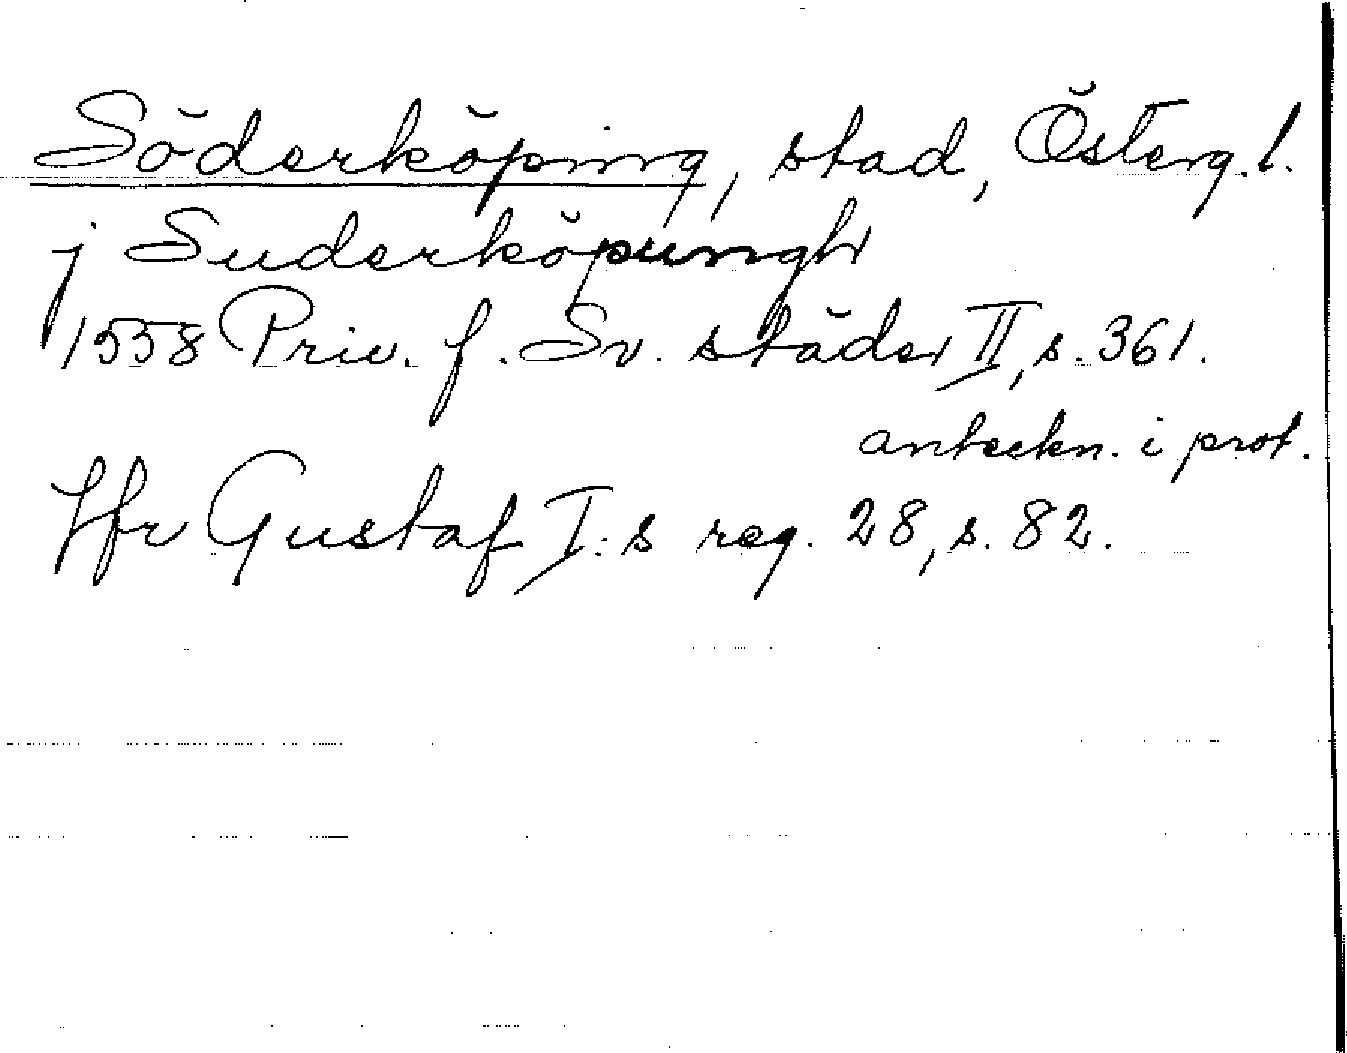 Söderköping, stad, Österg.l.
j Suderköpungh
1558 Priv. f. Sv. städer II, s. 361.
anteckn. i prot.
Jfr Gustaf I:s reg. 28, s. 82.